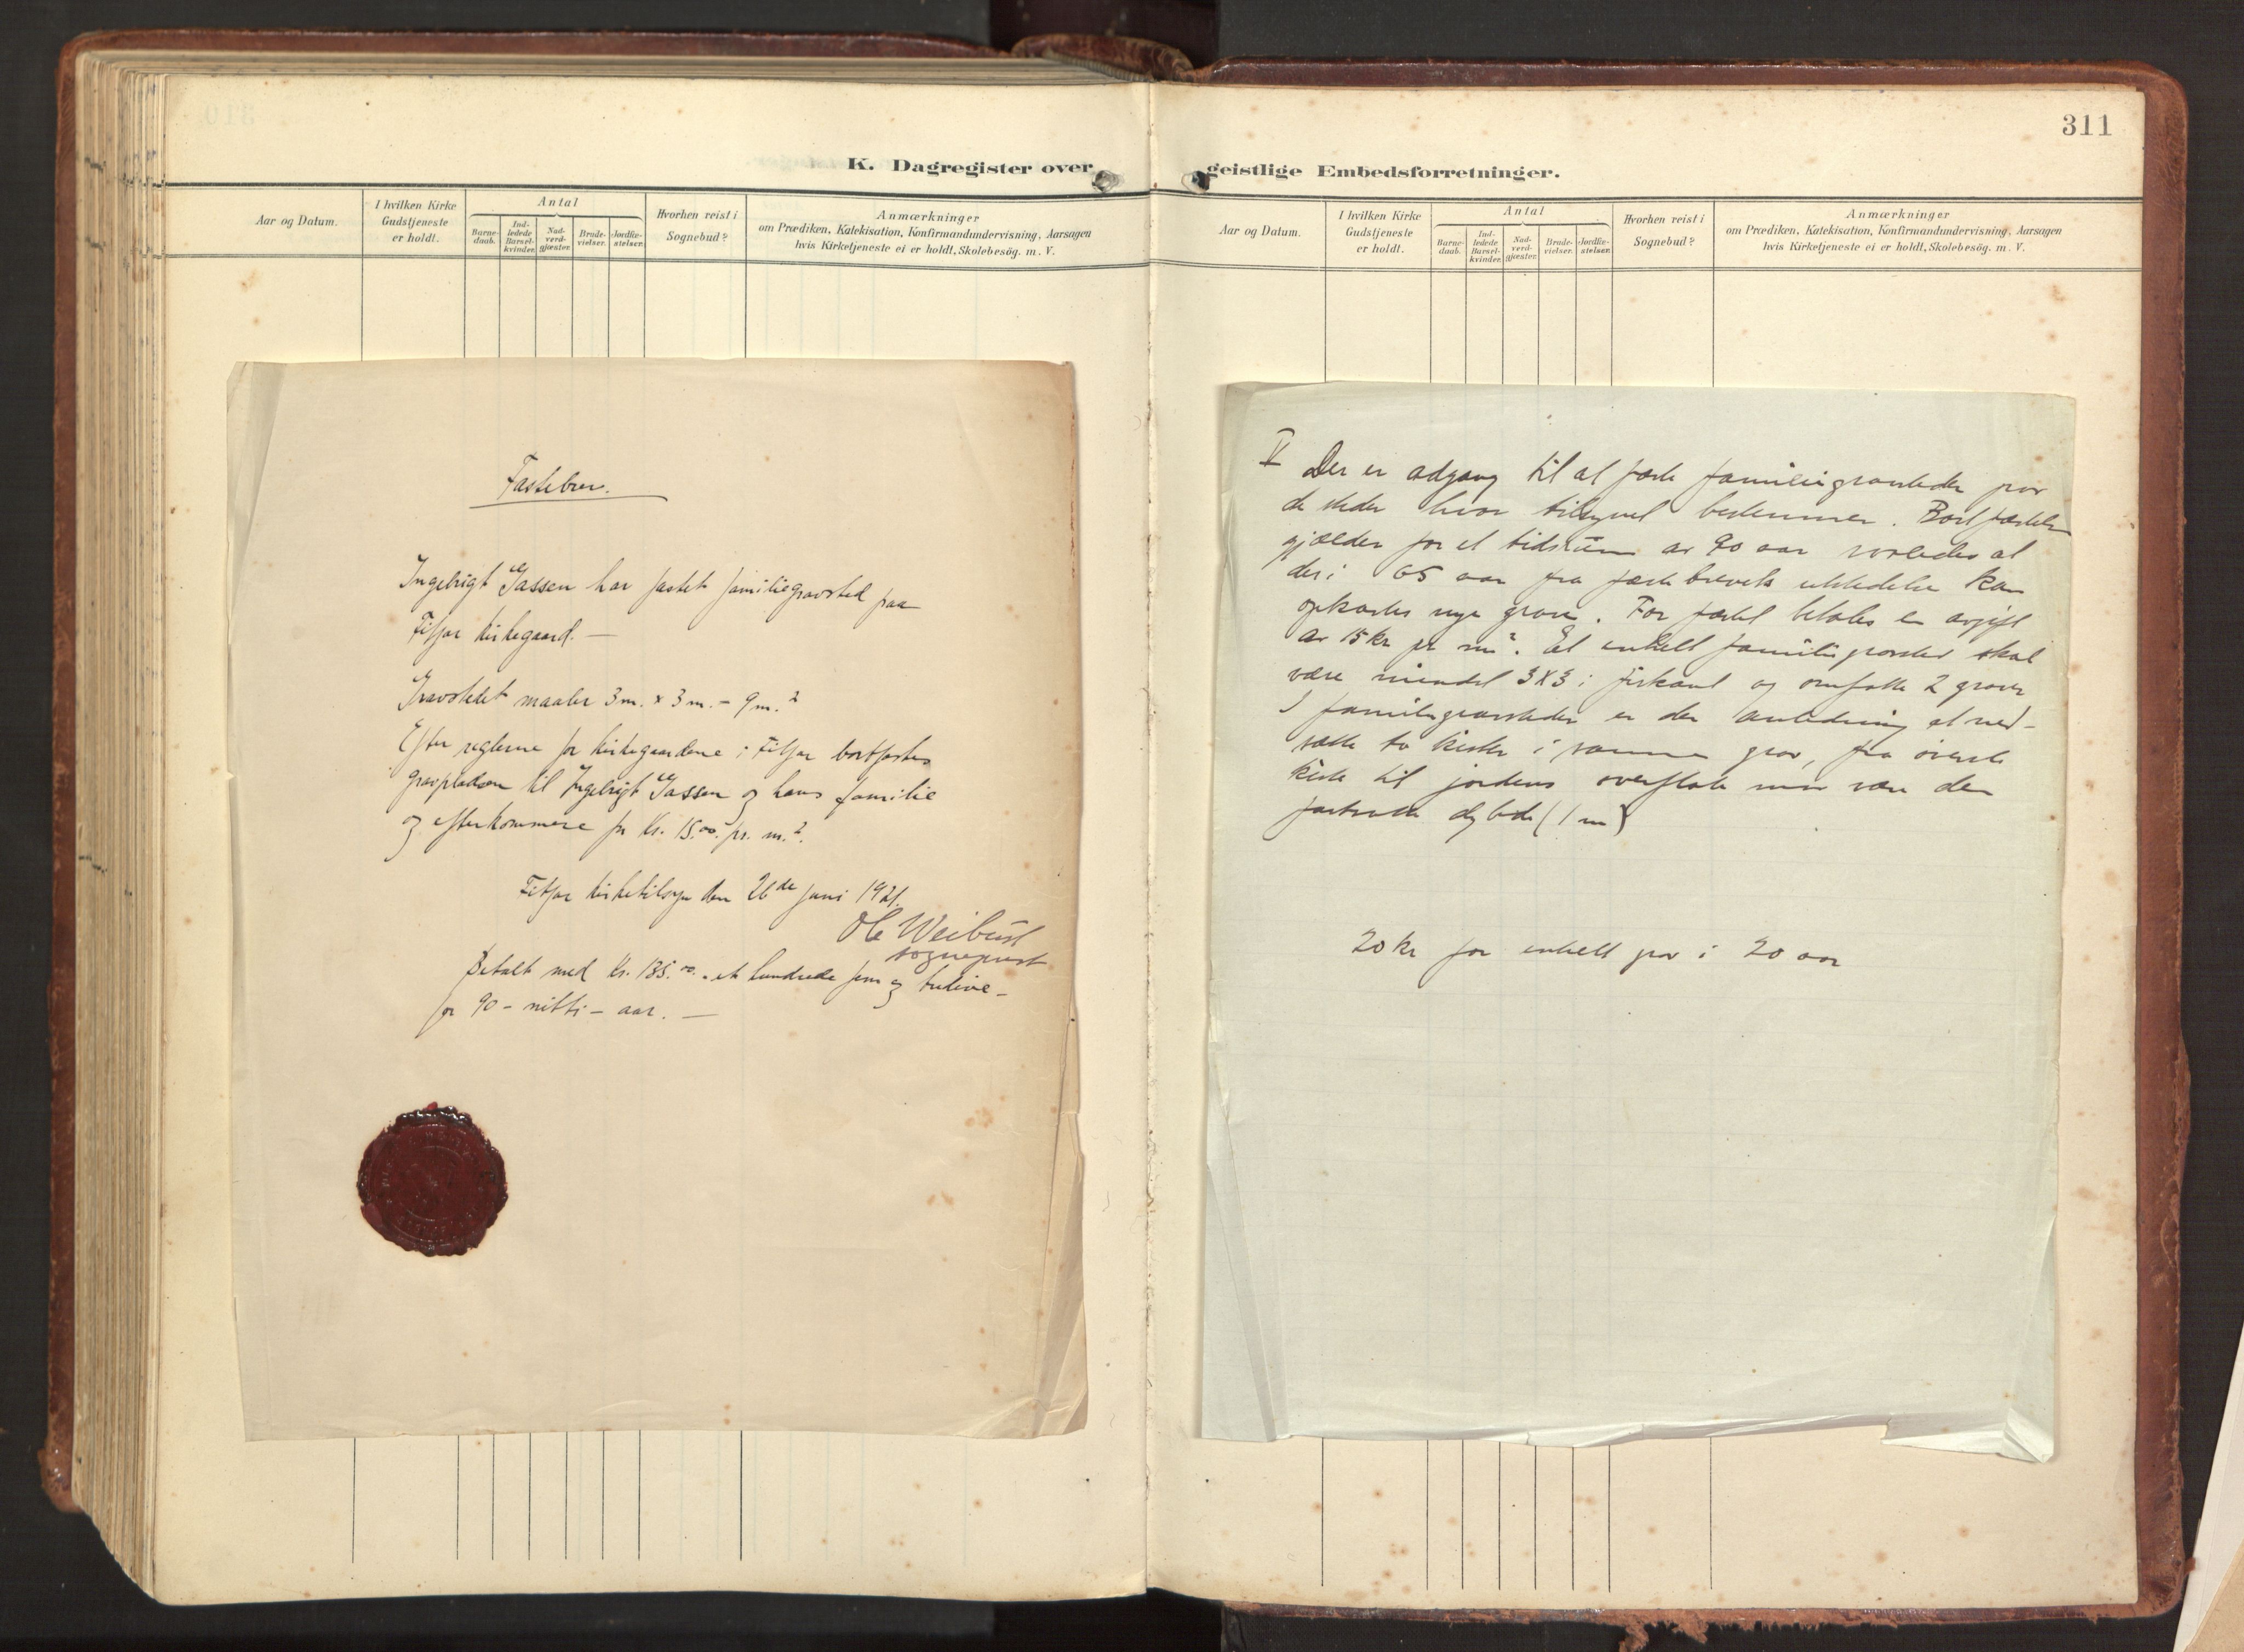 311
K. Dagregister over
Aar og Datum.
I hvilken Kirke
Gudstjeneste
er holdt.
Antal
Barne-
daab.
Ind-
ledede
Barsel-
kvinder.
Nad-
verd-
gjæster.
Brude-
vielser.
Jordfæ-
stelser.
Hvorhen reist i
Sognebud?
Anmærkninger
om Prædiken, Katekisation, Konfirmandundervisning, Aarsagen
hvis Kirketjeneste ei er holdt, Skolebesög. m. V.
Fæstebrev.
Ingebrigt Gassen har fæstet familiegravsted paa
Fitjar kirkegaard. —
Gravstedet maaler 3 m. x 3 m. = 9 m.²
Efter reglerne for kirkegaardene i Fitjar bortfæstes
gravpladsen til Ingebrigt Gassen og hans familie
og efterkommere for Kr. 15.00. pr. m.².
Fitjar kirketilsyn den 26de juni 1921.
Ole Weibust
sogneprest
Betalt med Kr. 135.00. - et hundrede fem og tredive -
for 90 - nitti - aar. —
geistlige Embedsforretninger.
Aar og Datum.
I hvilken Kirke
Gudstjeneste
er holdt.
Antal
Barne-
daab.
Ind-
ledede
Barsel-
kvinder.
Nad-
verd-
gjæster.
Brude-
vielser.
Jordfæ-
stelser.
Hvorhen reist i
Sognebud?
Anmærkninger
om Prædiken, Katekisation, Konfirmandundervisning, Aarsagen
hvis Kirketjeneste ei er holdt, Skolebesög. m. V.
V Der er adgang til at fæste familiegravsteder paa
de steder hvor tilsynet bestemmer. Bortfæstelsen
gjælder for et tidsrum av 90 aar saaledes at
der i 65 aar fra fæstebrevets utstedelse kan
opkastes nye grave. For fæstet betales en avgift
av 15 kr pr m². Et enkelt familiegravsted skal
være mindst 3X3 i firkant og omfatte 2 graver
I familiegravsteder er der anledning at ned-
sætte to kister i samme grav, fra øverste
kiste til jordens overflate maa være den
fastsatte dybde (1 m)
20 kr for enkelt grav i 20 aar